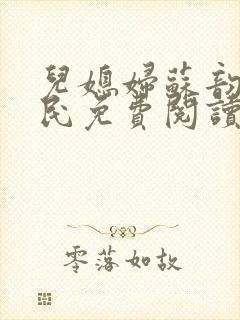 兒媳婦蘇韵
民免費閱讀
零落如故